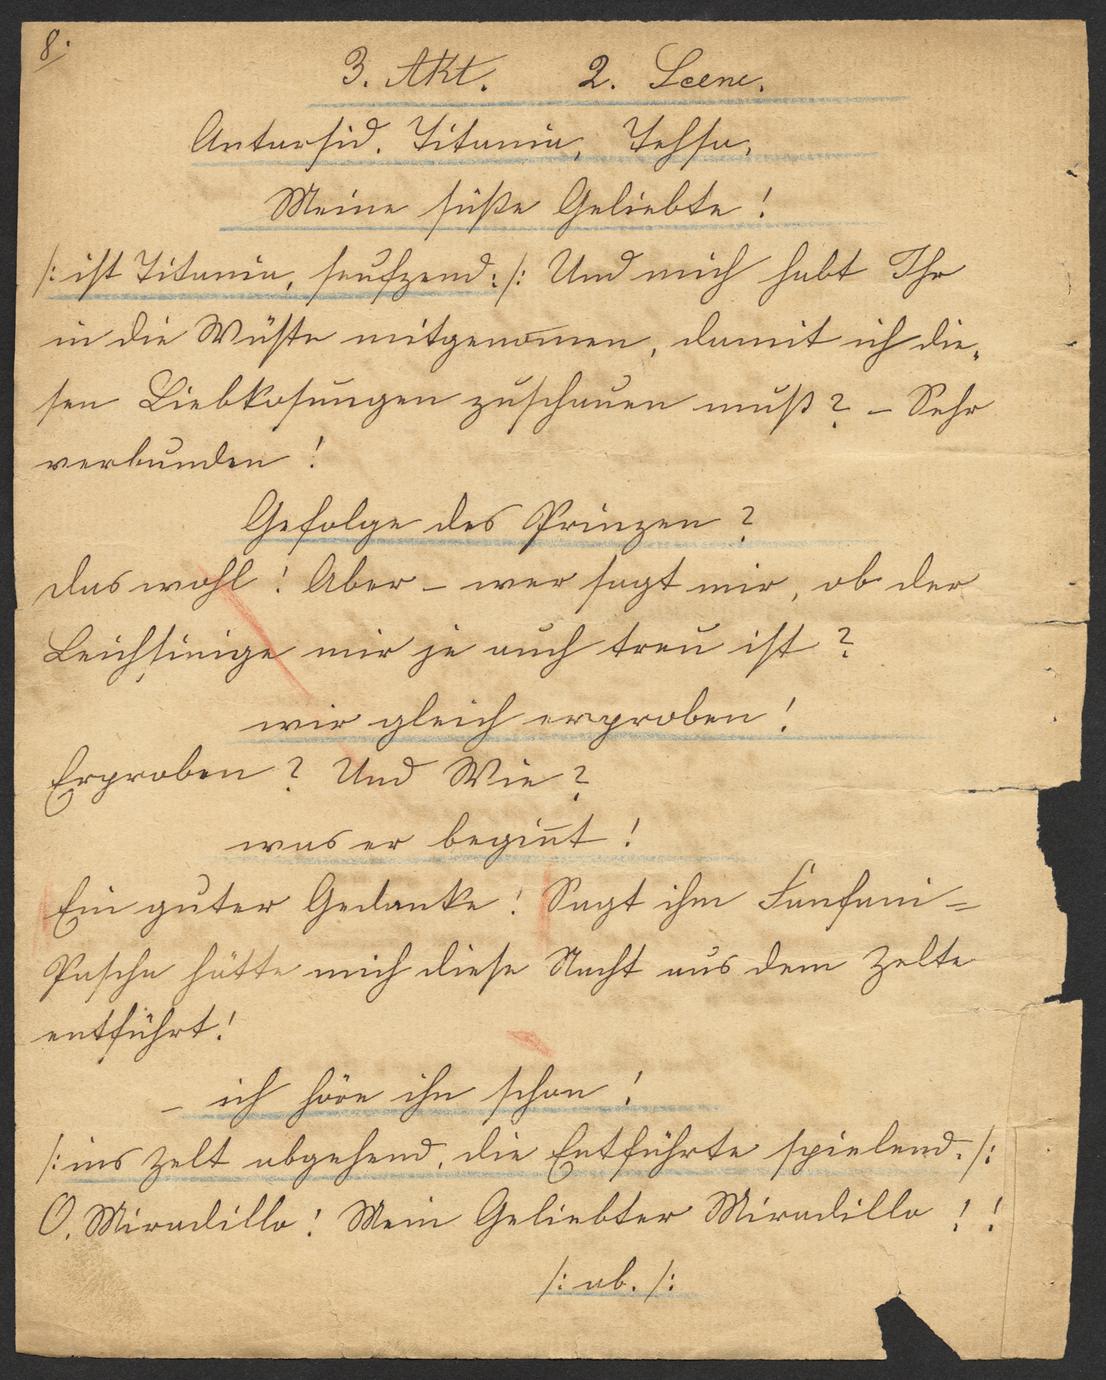 8.
3. Akt. 2. Scene.
Antarsid. Titania, Tessa,
Meine süße Geliebte!
/: ist Titania, seufzend :/: Und mich habt Ihr
in die Wüste mitgenom̄en, damit ich die„
sen Liebkosungen zuschauen muß? – Sehr
verbunden!
Gefolge des Prinzen?
das wohl! Aber – wer sagt mir, ob der
Leichsinige mir je auch treu ist?
wir gleich erproben!
Erproben? Und Wie?
was er begin̄t!
Ein guter Gedanke! Sagt ihm Fanfani=
Pascha hätte mich diese Nacht aus dem Zelte
entführt!
– ich höre ihn schon!
/: ins Zelt abgehend, die Entführte spielend. /:
O, Miradillo! Mein Geliebter Miradillo!!
/: ab. /: